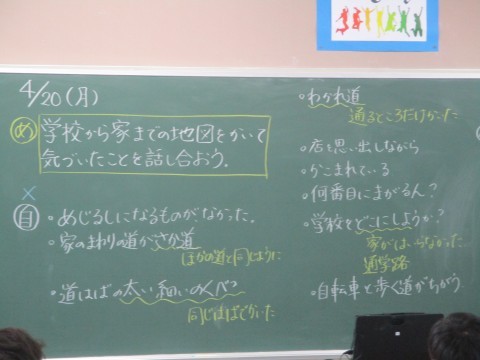 4/20(月)
め
学校から家までの地図をかいて
気づいたことを話し合おう。
×
自
・めじるしになるものがなかった。
・家のまわりの道がさか道
ほかの道と同じように
・道はばの太い細いのくべつ
同じはばでかいた
・わかれ道
通るところだけかいた
・店を思い出しながら
・かこまれている
・何番目にまがるん?
・学校をどこにしようか?
家がはいらなかった
通学路
・自転車と歩く道がちがう